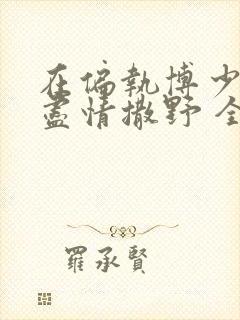 在偏執博少
盡情撒野 全
羅承賢